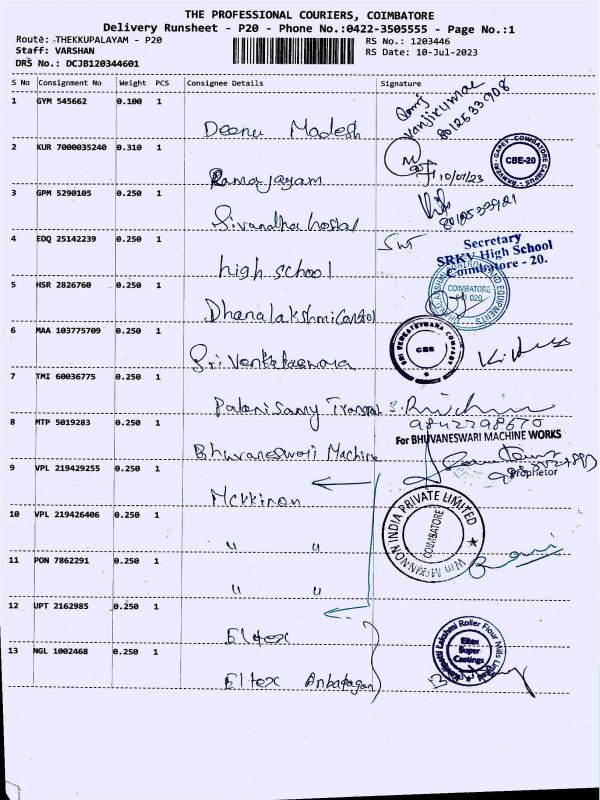 THE PROFESSIONAL COURIERS, COIMBATORE
Delivery Runsheet - P20 - Phone No.:0422-3505555 - Page No.:1
Route: THEKKUPALAYAM - P20
RS No.: 1203446
Staff: VARSHAN
RS Date: 10-Jul-2023
DRS No.: DCJB120344601
S No Consignment No Weight PCS Consignee Details Signature
1 GYM 545662 0.100 1 Deenu Madesh
Vanjikumar
8012533908
2 KUR 7000035240 0.310 1 Ramajayam
10/07/23
CBE-20
3 GPM 5290105 0.250 1 Sivandha hostal
4 EDQ 25142239 0.250 1 high school
Secretary
SRKV High School
Coimbatore - 20.
5 HSR 2826760 0.250 1 Dhanalakshmi
COIMBATORE
6 MAA 103775709 0.250 1 Sri Venkateswara
SRI VENKATESWARA COMPANY
CBE
7 TMI 60036775 0.250 1 Palanisamy
9842298670
8 MTP 5019283 0.250 1 Bhuvaneswari Machine
For BHUVANESWARI MACHINE WORKS
Proprietor
9 VPL 219429255 0.250 1 Mckkinon
INDIA PRIVATE LIMITED
COIMBATORE
10 VPL 219426406 0.250 1 " "
11 PON 7862291 0.250 1 " "
12 UPT 2162985 0.250 1 Eltex
13 NGL 1002468 0.250 1 Eltex
Lakshmi Roller Flour Mills Limited
Eltex
Super
Castings